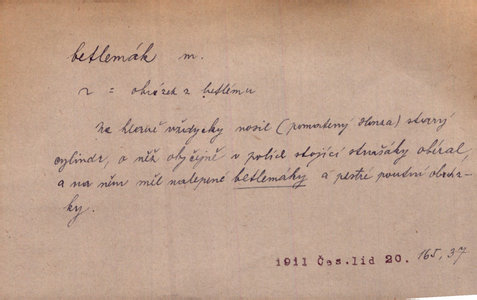 betlemák m.
r = obrázek z betlému
Na hlavě vždycky nosil (pomatený Honza) starý
cylindr, o něž obyčejně v polích stojící strašáky obíral,
a na něm měl nalepené betlemáky a pestré poutní obráz-
ky.
1911 Čes. lid 20. 165, 37